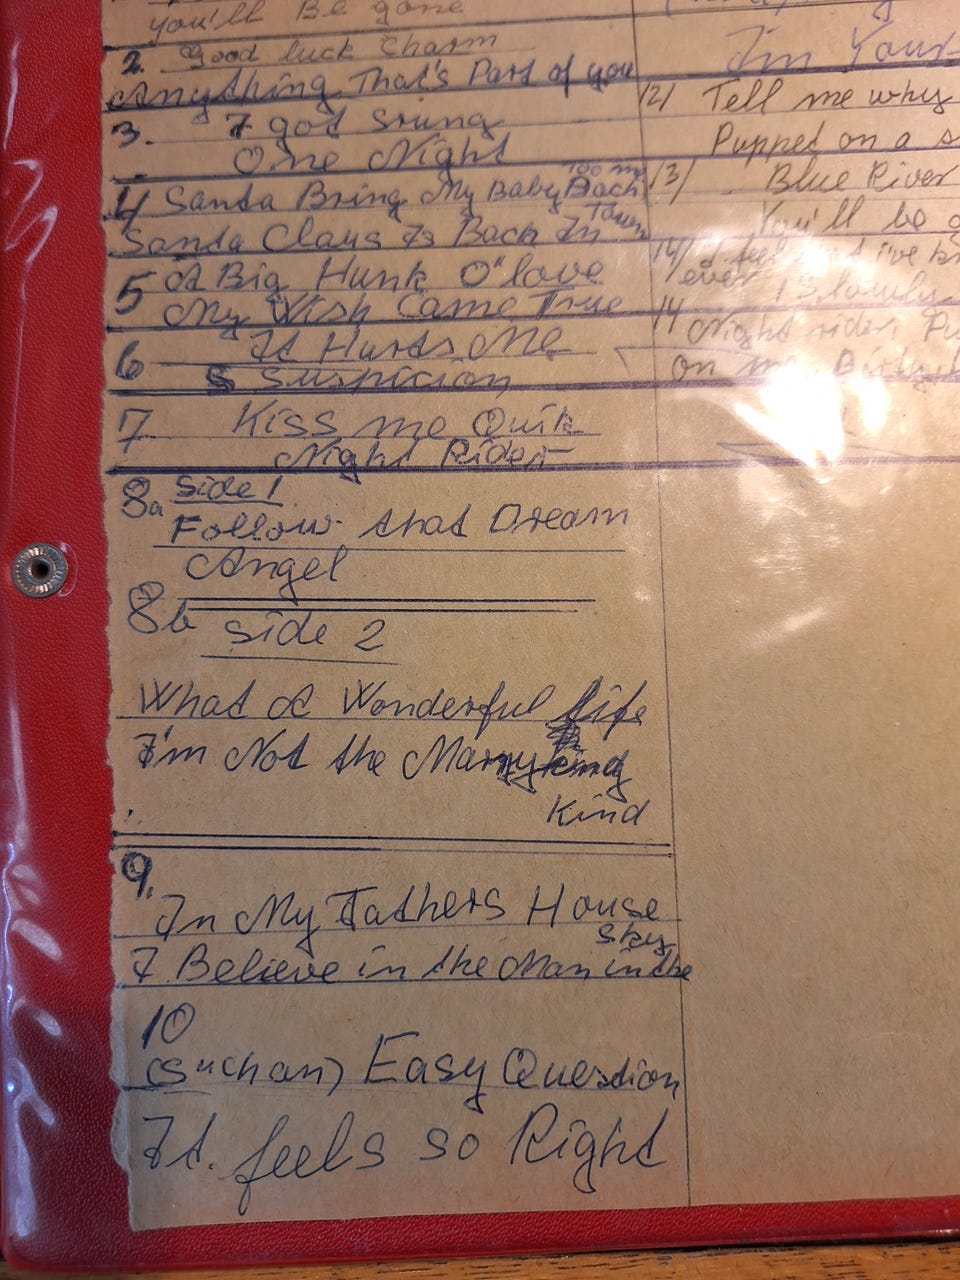 you'll Be gone
2. Good luck Charm
Anything That's Part of you
3. I got Stung
One Night
4 Santa Bring My Baby Back
too me
Santa Claus Is Back In Town
5 A Big Hunk O''love
My Wish Came True
6 It Hurts Me
Suspicion
7 Kiss me Quik
Night Rider
8a Side 1
Follow that Dream
Angel
8b Side 2
What A Wonderful life
I'm Not the Marry
Kind
9.
In My Fathers House
I Believe in the Man in the
Sky
10
(Such an) Easy Question
It. feels so Right
I'm Your
12/ Tell me why
Pupped on a s
13/ Blue River
You'll be g
14/ I feel that i've kn
ever
14 Night rider, Pu
on me, Dirty,